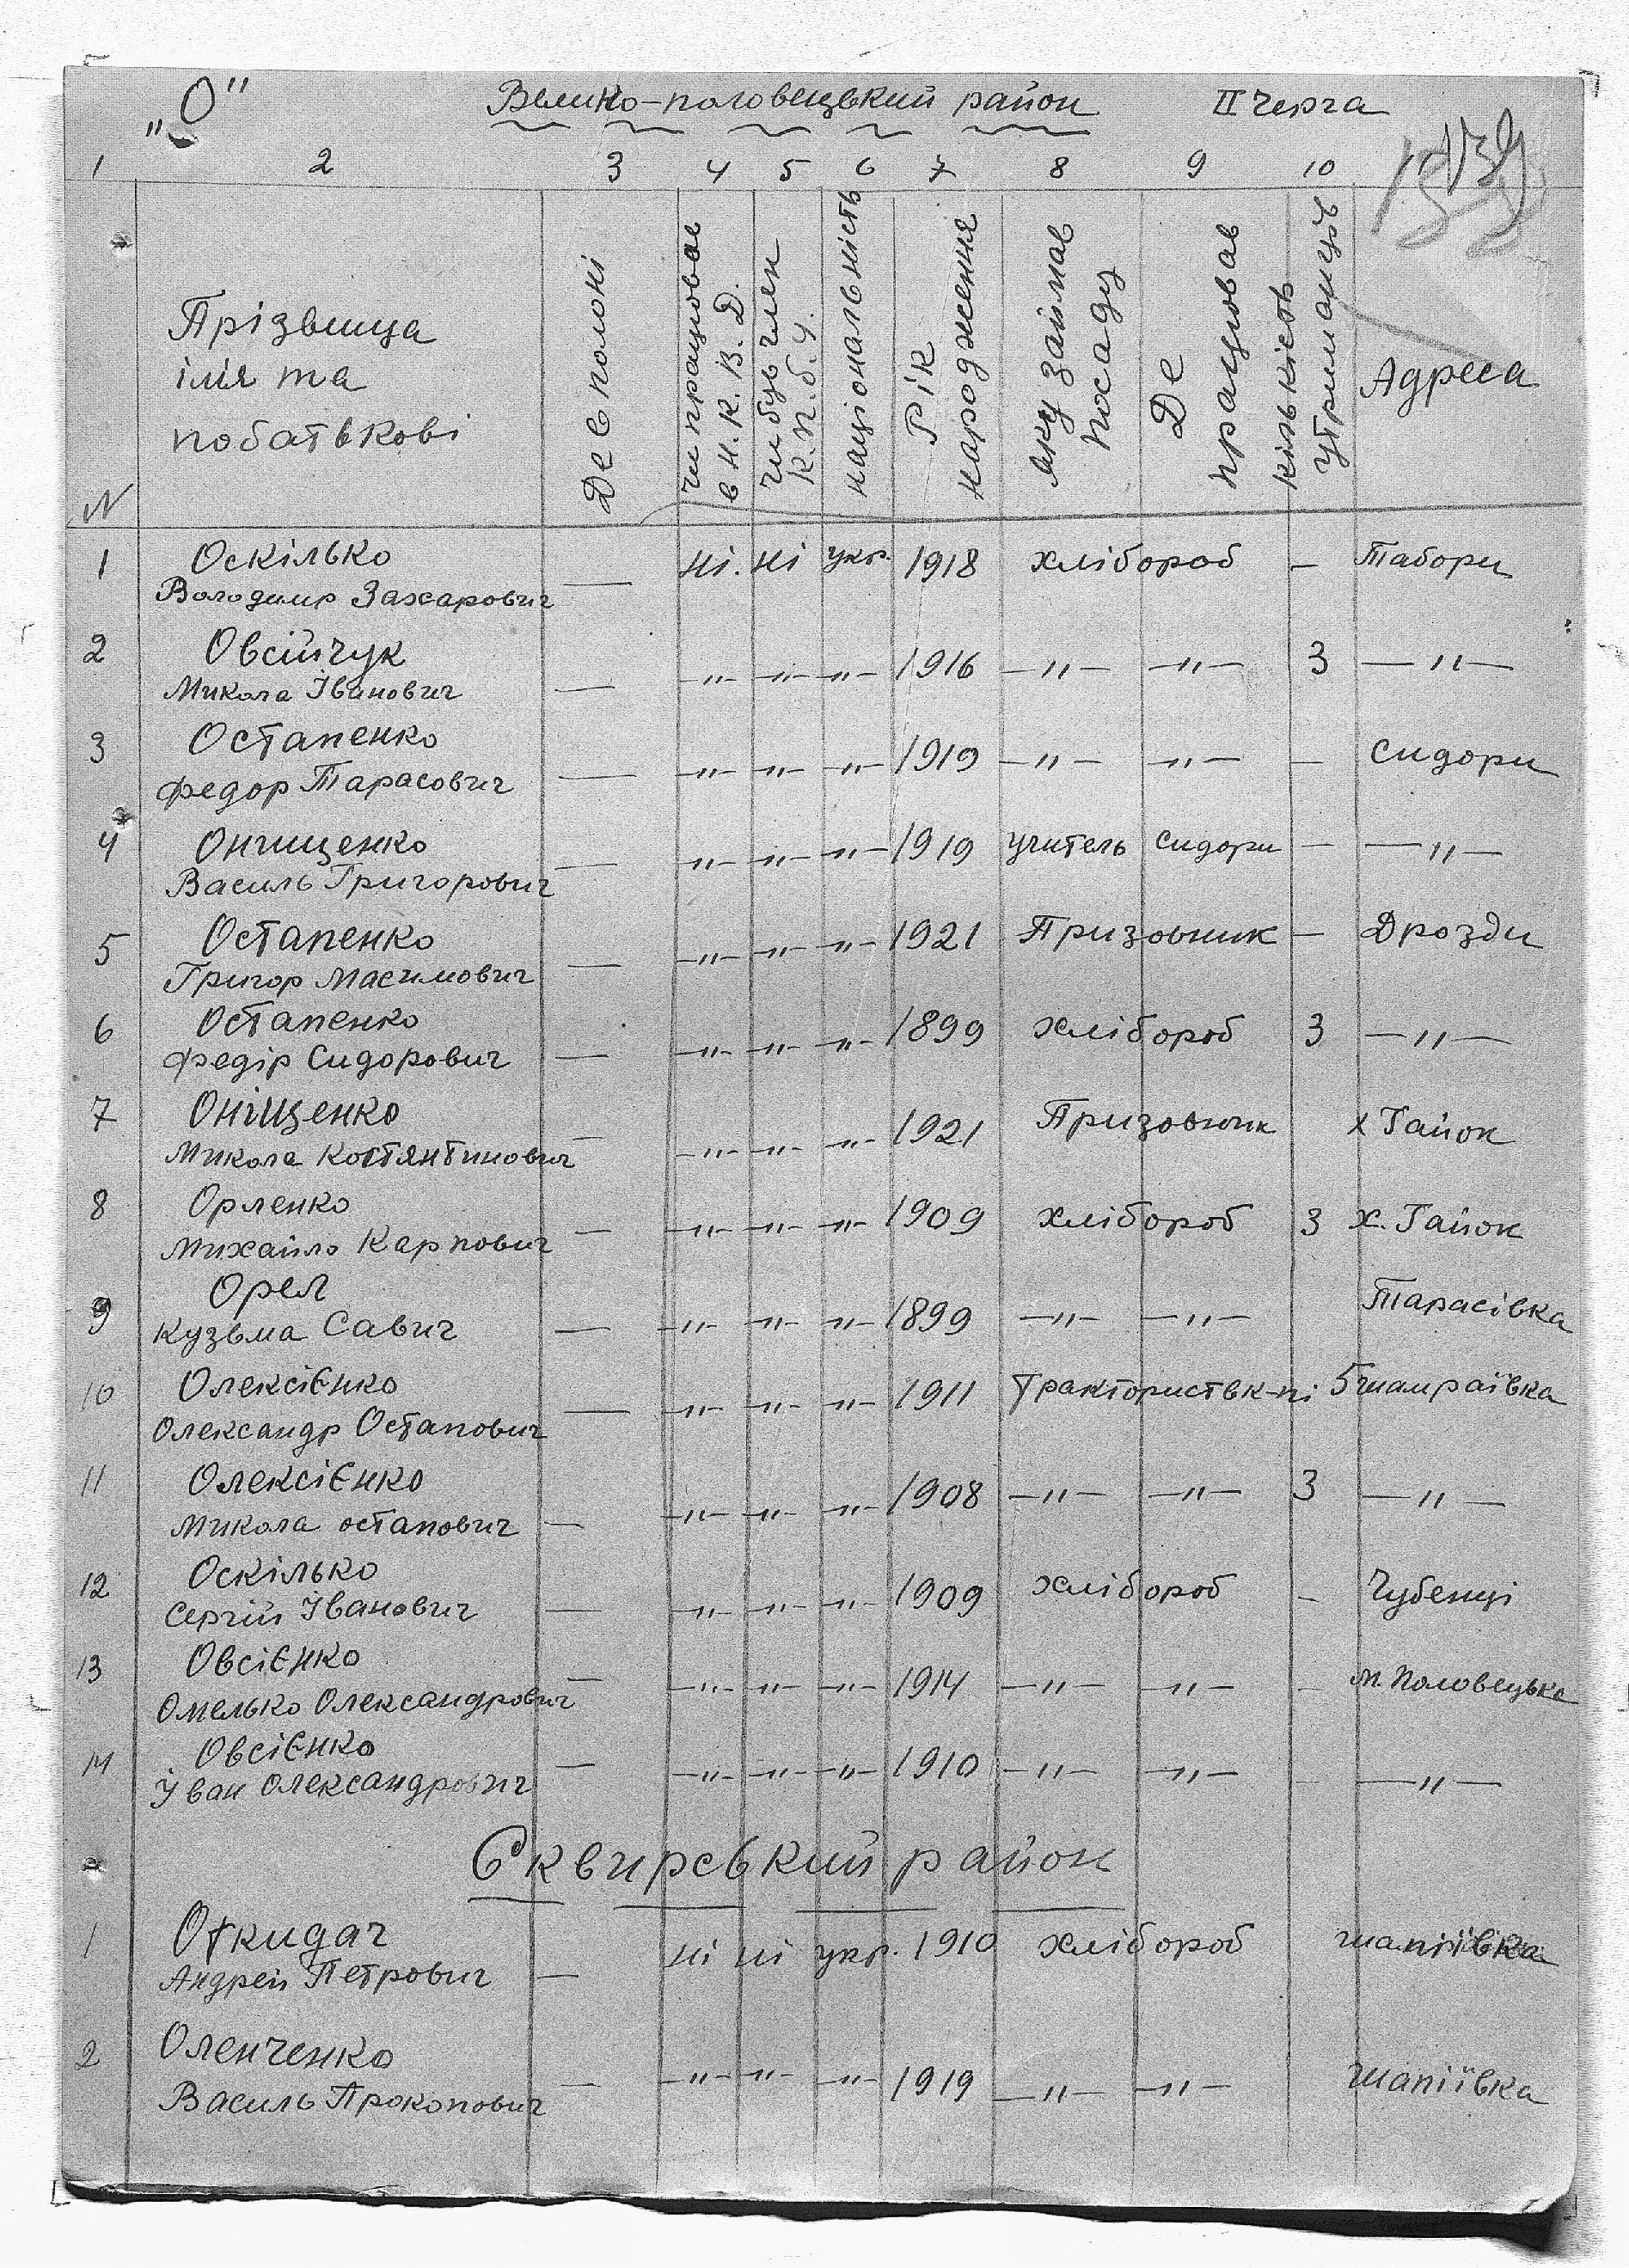 „О" Велико-половецький район II черга
1 2 3 4 5 6 7 8 9 10
N Прізвища
імя та
по батькові
Де в полоні
чи працював
в Н.К.В.Д.
чи був член
К.П.б.У.
національність
Рік
народження
яку займав
посаду
Де
працював
кількість
утриманців
Адреса
1 Оскілько — ні. ні укр. 1918 хлібороб — Табори
Володимир Захарович
2 Овсійчук
Микола Іванович — —"— —"— —"— 1916 —"— —"— 3 —"—
3 Остапенко
Федор Тарасович — —"— —"— —"— 1919 —"— —"— — Сидори
4 Онищенко
Василь Григорович — —"— —"— —"— 1919 учитель Сидори — —"—
5 Остапенко
Григор Масимович — —"— —"— —"— 1921 Призовник — Дрозди
6 Остапенко
Федір Сидорович — —"— —"— —"— 1899 хлібороб 3 —"—
7 Оніщенко
Микола Костянтинович — —"— —"— —"— 1921 Призовник х Гайок
8 Орленко
Михайло Карпович — —"— —"— —"— 1909 хлібороб 3 х. Гайок
9 Орел
Кузьма Савич — —"— —"— —"— 1899 —"— —"— Тарасівка
10 Олексієнко
Олександр Остапович — —"— —"— —"— 1911 Тракторист в к-пі 5
11 Олексієнко
Микола Остапович — —"— —"— —"— 1908 —"— —"— 3 —"—
12 Оскілько
Сергій Іванович — —"— —"— —"— 1909 хлібороб - Чубенці
13 Овсієнко
Омелько Олександрович — —"— —"— —"— 1914 —"— —"— - м. Половецьке
14 Овсієнко
Іван Олександрович — —"— —"— —"— 1910 —"— —"— - —"—
Сквирський район
1 Откидач
Андрей Петрович — ні ні укр. 1910 хлібороб шапіївка
2 Оленченко
Василь Прокопович — —"— —"— —"— 1919 —"— —"— шапіївка